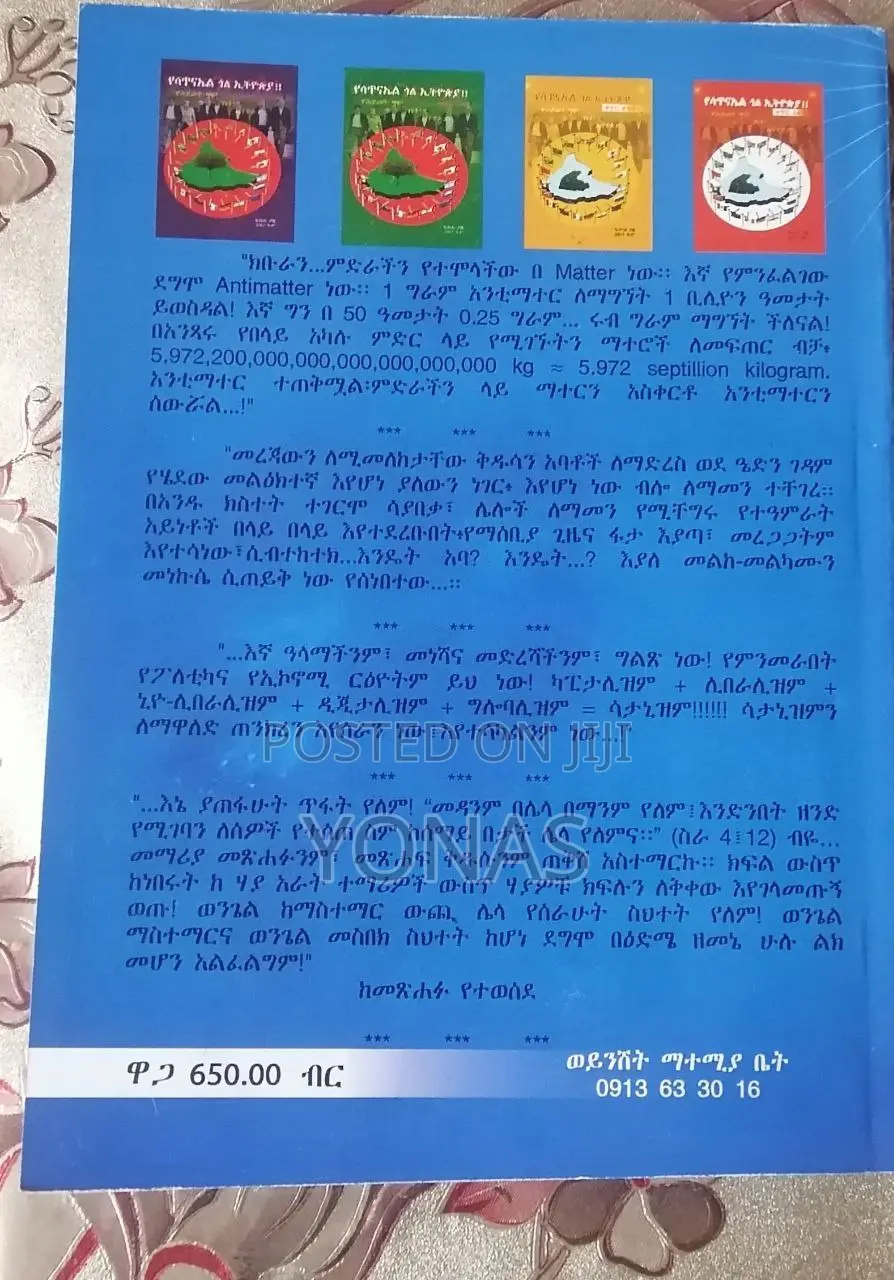 የሳጥናኤል ጎል ኢትዮጵያ!!
የሳጥናኤል ጎል ኢትዮጵያ!!
የሳጥናኤል ጎል ኢትዮጵያ
የሳጥናኤል ጎል ኢትዮጵያ!!
"ክቡራን...ምድራችን የተሞላችው በ Matter ነው። እኛ የምንፈልገው
ደግሞ Antimatter ነው። 1 ግራም አንቲማተር ለማግኘት 1 ቢሊዮን ዓመታት
ይወስዳል! እኛ ግን በ 50 ዓመታት 0.25 ግራም... ሩብ ግራም ማግኘት ችለናል!
በአንጻሩ የበላይ አካሉ ምድር ላይ የሚገኙትን ማተሮች ለመፍጠር ብቻ፥
5,972,200,000,000,000,000,000,000 kg ≈ 5.972 septillion kilogram.
አንቲማተር ተጠቅሟል፡ምድራችን ላይ ማተርን አስቀርቶ አንቲማተርን
ሰውሯል...!"
*** *** ***
"መረጃውን ለሚመለከታቸው ቅዱሳን አባቶች ለማድረስ ወደ ዔድን ገዳም
የሄደው መልዕክተኛ እየሆነ ያለውን ነገር፥ እየሆነ ነው ብሎ ለማመን ተቸገረ።
በአንዱ ክስተት ተገርሞ ሳያበቃ፣ ሌሎች ለማመን የሚቸግሩ የተዓምራት
አይነቶች በላይ በላይ እየተደረቡበት፥የማሰቢያ ጊዜና ፋታ እያጣ፣ መረጋጋትም
እየተሳነው፣ሲብተከተክ...እንዴት አባ? እንዴት...? እያለ መልከ-መልካሙን
መነኩሴ ሲጠይቅ ነው የሰነበተው...።
*** *** ***
"...እኛ ዓላማችንም፣ መነሻና መድረሻችንም፣ ግልጽ ነው! የምንመራበት
የፖለቲካና የኢኮኖሚ ርዕዮትም ይህ ነው! ካፒታሊዝም + ሊበራሊዝም +
ኒዮ-ሊበራሊዝም + ዲጂታሊዝም + ግሎባሊዝም = ሳታኒዝም!!!!!! ሳታኒዝምን
ለማዋለድ ጠንክረን እየሰራን ነው፤እየተሳካልንም ነው...!"
POSTED ON JIJI
*** *** ***
"...እኔ ያጠፋሁት ጥፋት የለም! “መዳንም በሌላ በማንም የለም፤እንድንበት ዘንድ
የሚገባን ለሰዎች የተሰጠ ስም ከሰማይ በታች ሌላ የለምና።” (ስራ 4፤12) ብዬ...
YONAS
መማሪያ መጽሐፉንም፣ መጽሐፍ ቅዱሱንም ጠቅሼ አስተማርኩ። ክፍል ውስጥ
ከነበሩት ከ ሃያ አራት ተማሪዎች ውስጥ ሃያዎቹ ክፍሉን ለቅቀው እየገላመጡኝ
ወጡ! ወንጌል ከማስተማር ውጪ ሌላ የሰራሁት ስህተት የለም! ወንጌል
ማስተማርና ወንጌል መስበክ ስህተት ከሆነ ደግሞ በዕድሜ ዘመኔ ሁሉ ልክ
መሆን አልፈልግም!"
ከመጽሐፉ የተወሰደ
*** *** ***
ዋጋ 650.00 ብር
ወይንሸት ማተሚያ ቤት
0913 63 30 16